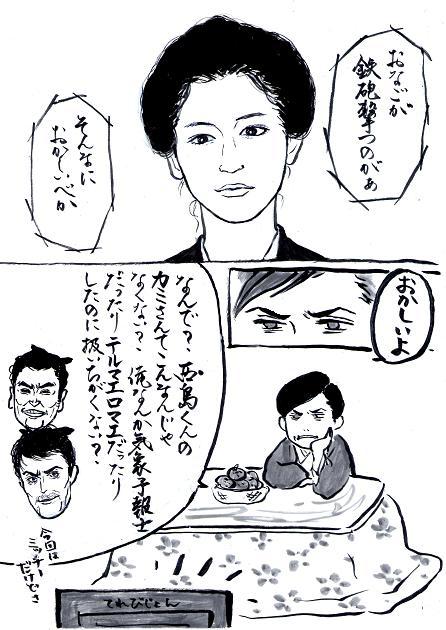 おなごが
鉄砲撃つのがぁ
そんなに
おかしいべか
おかしいよ
なんで？西島くんの
カミさんてこんなんじゃ
なくない？俺なんか気象予報士
だったりテルマエロマエだったり
したのに扱いちがくない？
今回は
ミッチー
だけどさ
てれびじょん